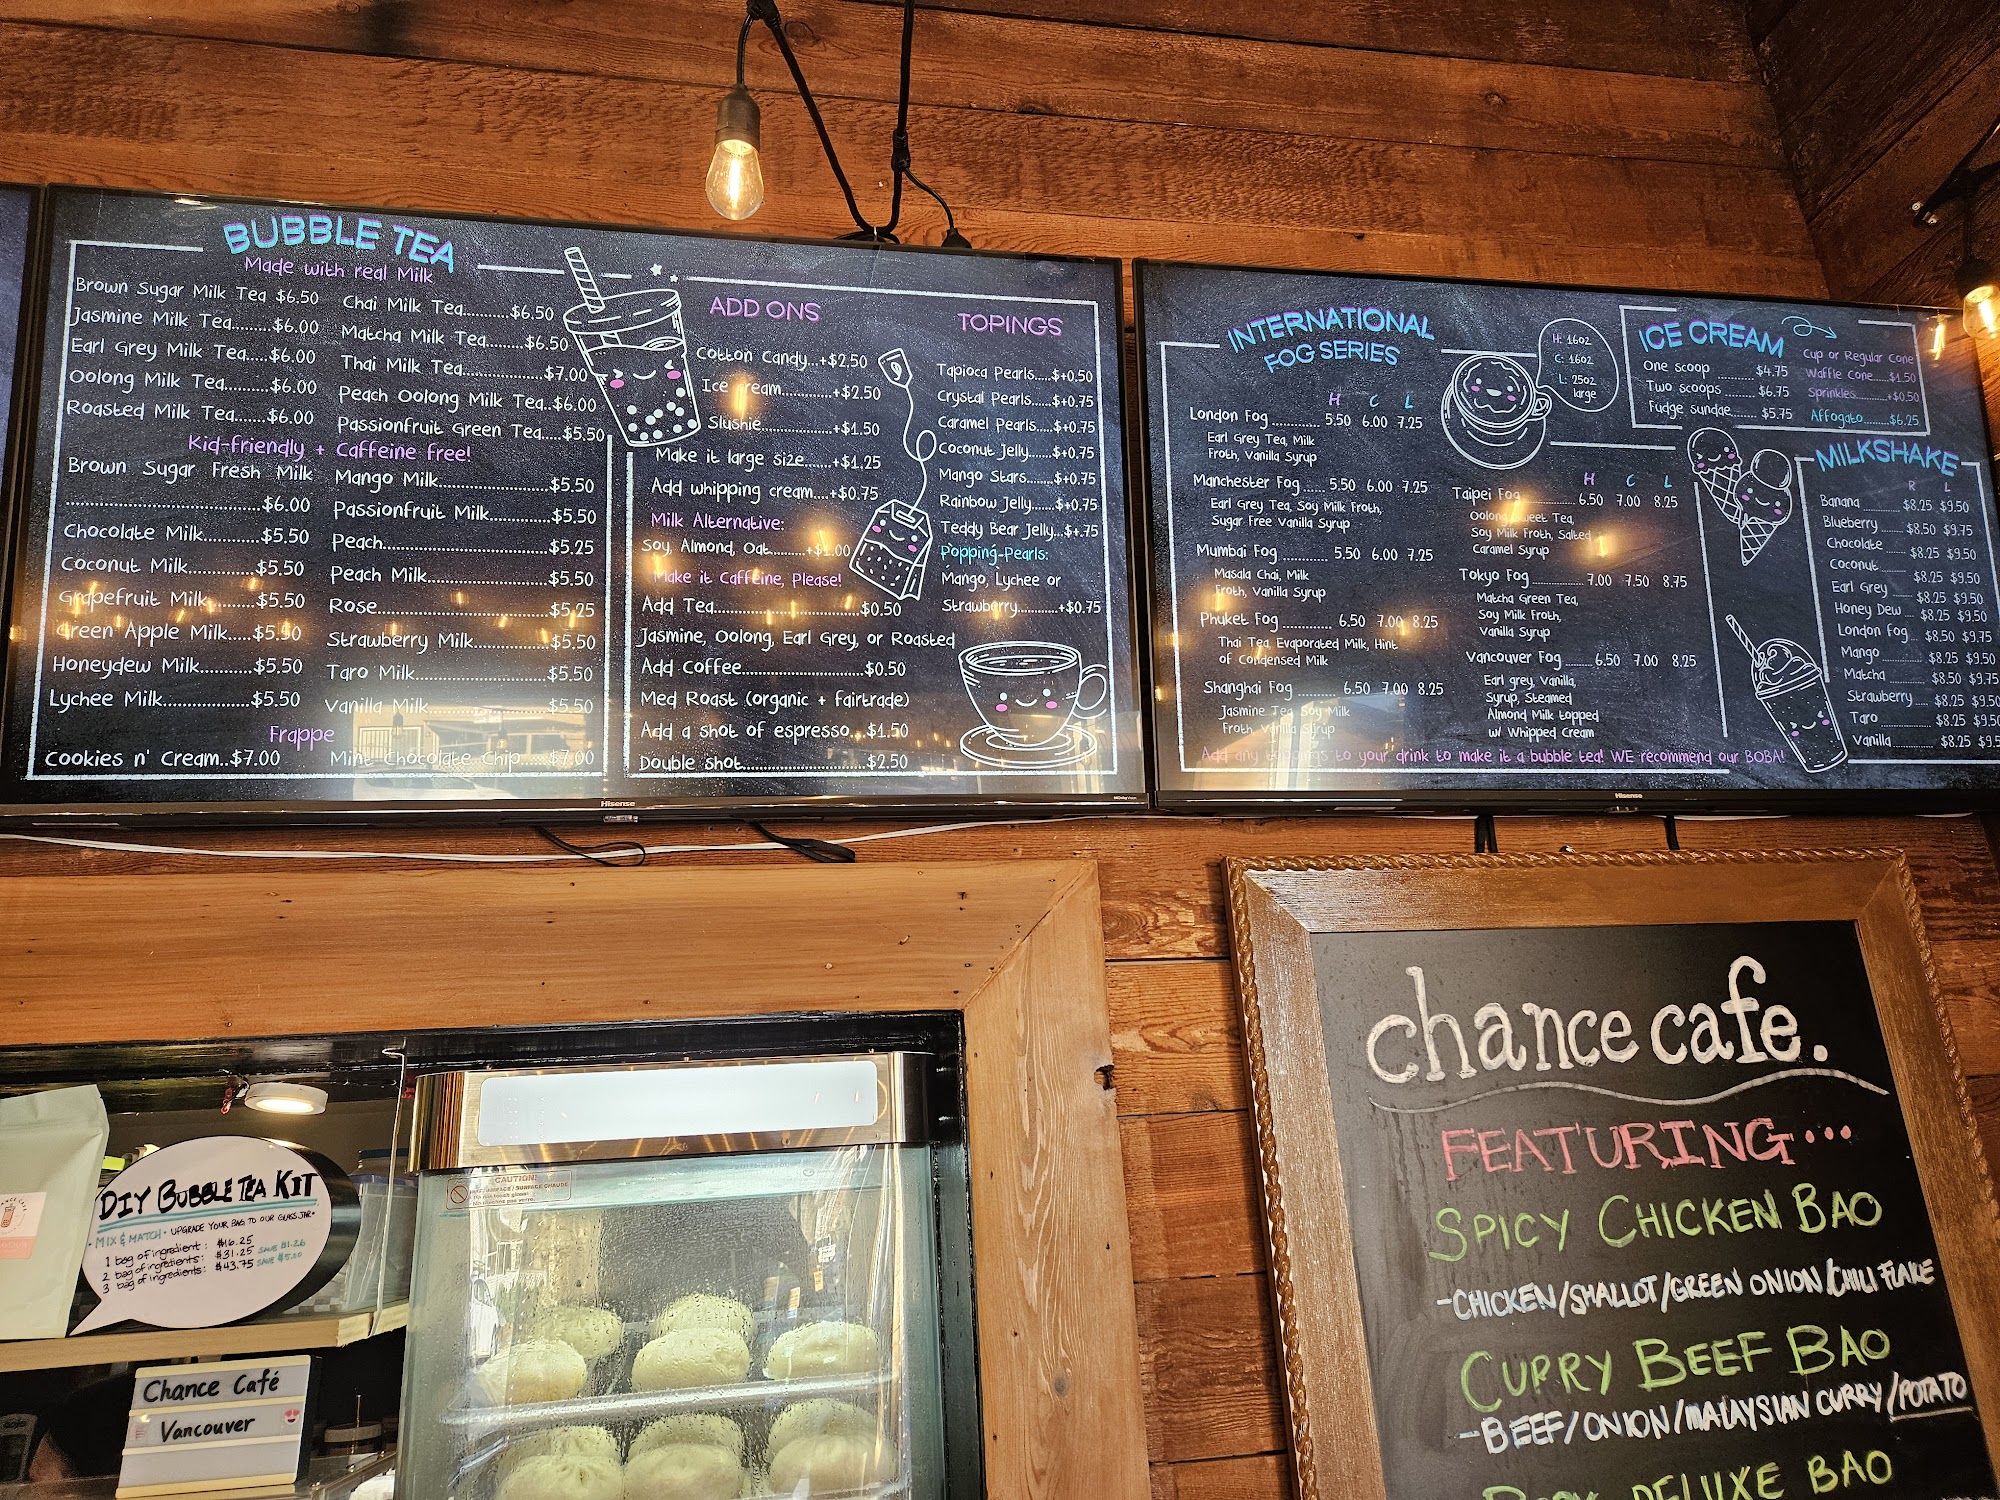 BUBBLE TEA
Made with real Milk
Brown Sugar Milk Tea $6.50
Jasmine Milk Tea........$6.00
Earl Grey Milk Tea.....$6.00
Oolong Milk Tea.........$6.00
Roasted Milk Tea.......$6.00
Chai Milk Tea..........$6.50
Matcha Milk Tea........$6.50
Thai Milk Tea..................$7.00
Peach Oolong Milk Tea..$6.00
Passionfruit Green Tea.....$5.50
Kid-friendly + Caffeine free!
Brown Sugar Fresh Milk
..............................$6.00
Chocolate Milk.........$5.50
Coconut Milk.............$5.50
Grapefruit Milk........$5.50
Green Apple Milk.....$5.50
Honeydew Milk...........$5.50
Lychee Milk.................$5.50
Mango Milk......................$5.50
Passionfruit Milk............$5.50
Peach................................$5.25
Peach Milk.......................$5.50
Rose..................................$5.25
Strawberry Milk.............$5.50
Taro Milk.........................$5.50
Vanilla Milk.....................$5.50
Frappe
Cookies n' Cream..$7.00
Mint Chocolate Chip......$7.00
ADD ONS
Cotton Candy...+$2.50
Ice cream...........+$2.50
Slushie..................+$1.50
Make it large size.......+$1.25
Add whipping cream....+$0.75
Milk Alternative:
Soy, Almond, Oat..........+$1.00
Make it Caffeine, Please!
Add Tea.............................$0.50
Jasmine, Oolong, Earl Grey, or Roasted
Add Coffee........................$0.50
Med Roast (organic + fairtrade)
Add a shot of espresso...$1.50
Double shot..............................$2.50
TOPINGS
Tapioca Pearls....$+0.50
Crystal Pearls......$+0.75
Caramel Pearls...$+0.75
Coconut Jelly......$+0.75
Mango Stars........$+0.75
Rainbow Jelly......$+0.75
Teddy Bear Jelly...$+.75
Popping Pearls:
Mango, Lychee or
Strawberry.........+$0.75
Hisense
INTERNATIONAL
FOG SERIES
H: 16oz
C: 16oz
L: 25oz
large
H C L
London Fog............ 5.50 6.00 7.25
Earl Grey Tea, Milk
Froth, Vanilla Syrup
Manchester Fog ...... 5.50 6.00 7.25
Earl Grey Tea, Soy Milk Froth,
Sugar Free Vanilla Syrup
Mumbai Fog ............. 5.50 6.00 7.25
Masala Chai, Milk
Froth, Vanilla Syrup
Phuket Fog ............... 6.50 7.00 8.25
Thai Tea, Evaporated Milk, Hint
of Condensed Milk
Shanghai Fog ........... 6.50 7.00 8.25
Jasmine Tea, Soy Milk
Froth, Vanilla Syrup
H C L
Taipei Fog ............... 6.50 7.00 8.25
Oolong Sweet Tea,
Soy Milk Froth, Salted
Caramel Syrup
Tokyo Fog ............... 7.00 7.50 8.75
Matcha Green Tea,
Soy Milk Froth,
Vanilla Syrup
Vancouver Fog ........ 6.50 7.00 8.25
Earl grey, Vanilla,
Syrup, Steamed
Almond Milk topped
w/ Whipped Cream
Add any toppings to your drink to make it a bubble tea! WE recommend our BOBA!
ICE CREAM
One scoop ............ $4.75
Two scoops .......... $6.75
Fudge sundae........ $5.75
Cup or Regular Cone
Waffle Cone......$1.50
Sprinkles...........+$0.50
Affogato...........$6.25
MILKSHAKE
R L
Banana ........... $8.25 $9.50
Blueberry ...... $8.50 $9.75
Chocolate ...... $8.25 $9.50
Coconut........... $8.25 $9.50
Earl Grey ...... $8.25 $9.50
Honey Dew .... $8.25 $9.50
London Fog... $8.50 $9.75
Mango ............ $8.25 $9.50
Matcha ........... $8.50 $9.75
Strawberry ..... $8.25 $9.50
Taro ................ $8.25 $9.50
Vanilla ............ $8.25 $9.5
Hisense
chance cafe.
FEATURING...
SPICY CHICKEN BAO
-CHICKEN/SHALLOT/GREEN ONION/CHILI FLAKE
CURRY BEEF BAO
-BEEF/ONION/MALAYSIAN CURRY/POTATO
PORK DELUXE BAO
DIY BUBBLE TEA KIT
• MIX & MATCH • UPGRADE YOUR BAG TO OUR GLASS JAR•
1 bag of ingredient : $16.25
2 bag of ingredients: $31.25 SAVE $1.26
3 bag of ingredients: $43.75 SAVE $5.00
Chance Café
Vancouver
CAUTION:
HOT SURFACE / SURFACE CHAUDE